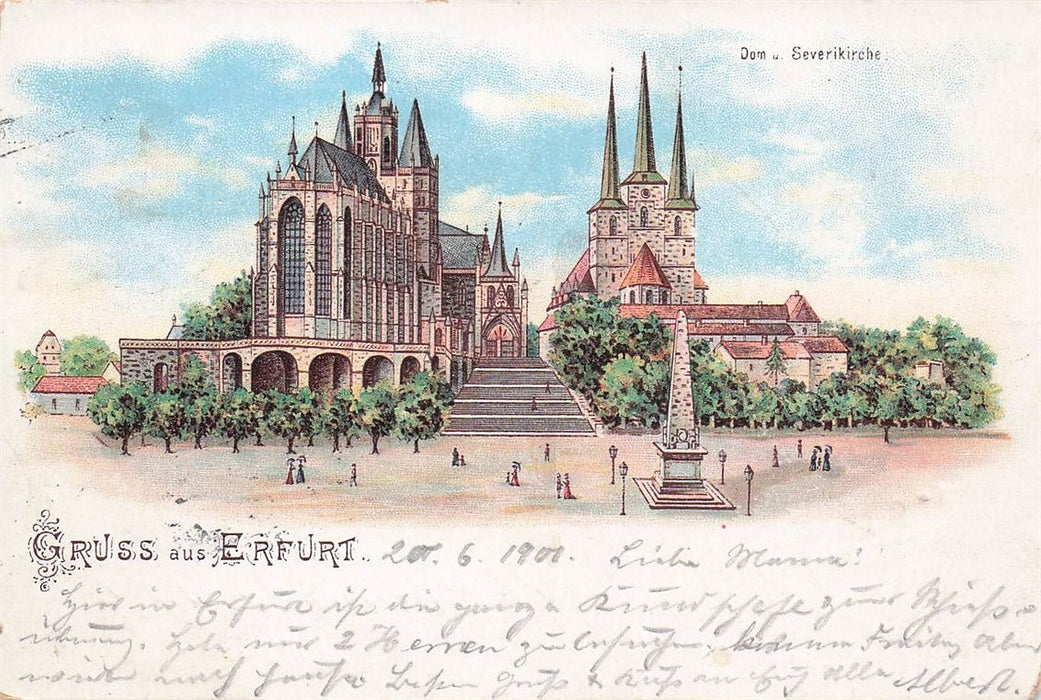 Dom u. Severikirche.
GRUSS aus ERFURT. 20. 6. 1901. Liebe Mama!
Hier in Erfurt ist die ganze Kundschaft zur
habe nur 2 Herren zu besuchen, komme Freitag Abend
wieder nach Hause. Besten Gruß & Kuß an Euch alle Albert.